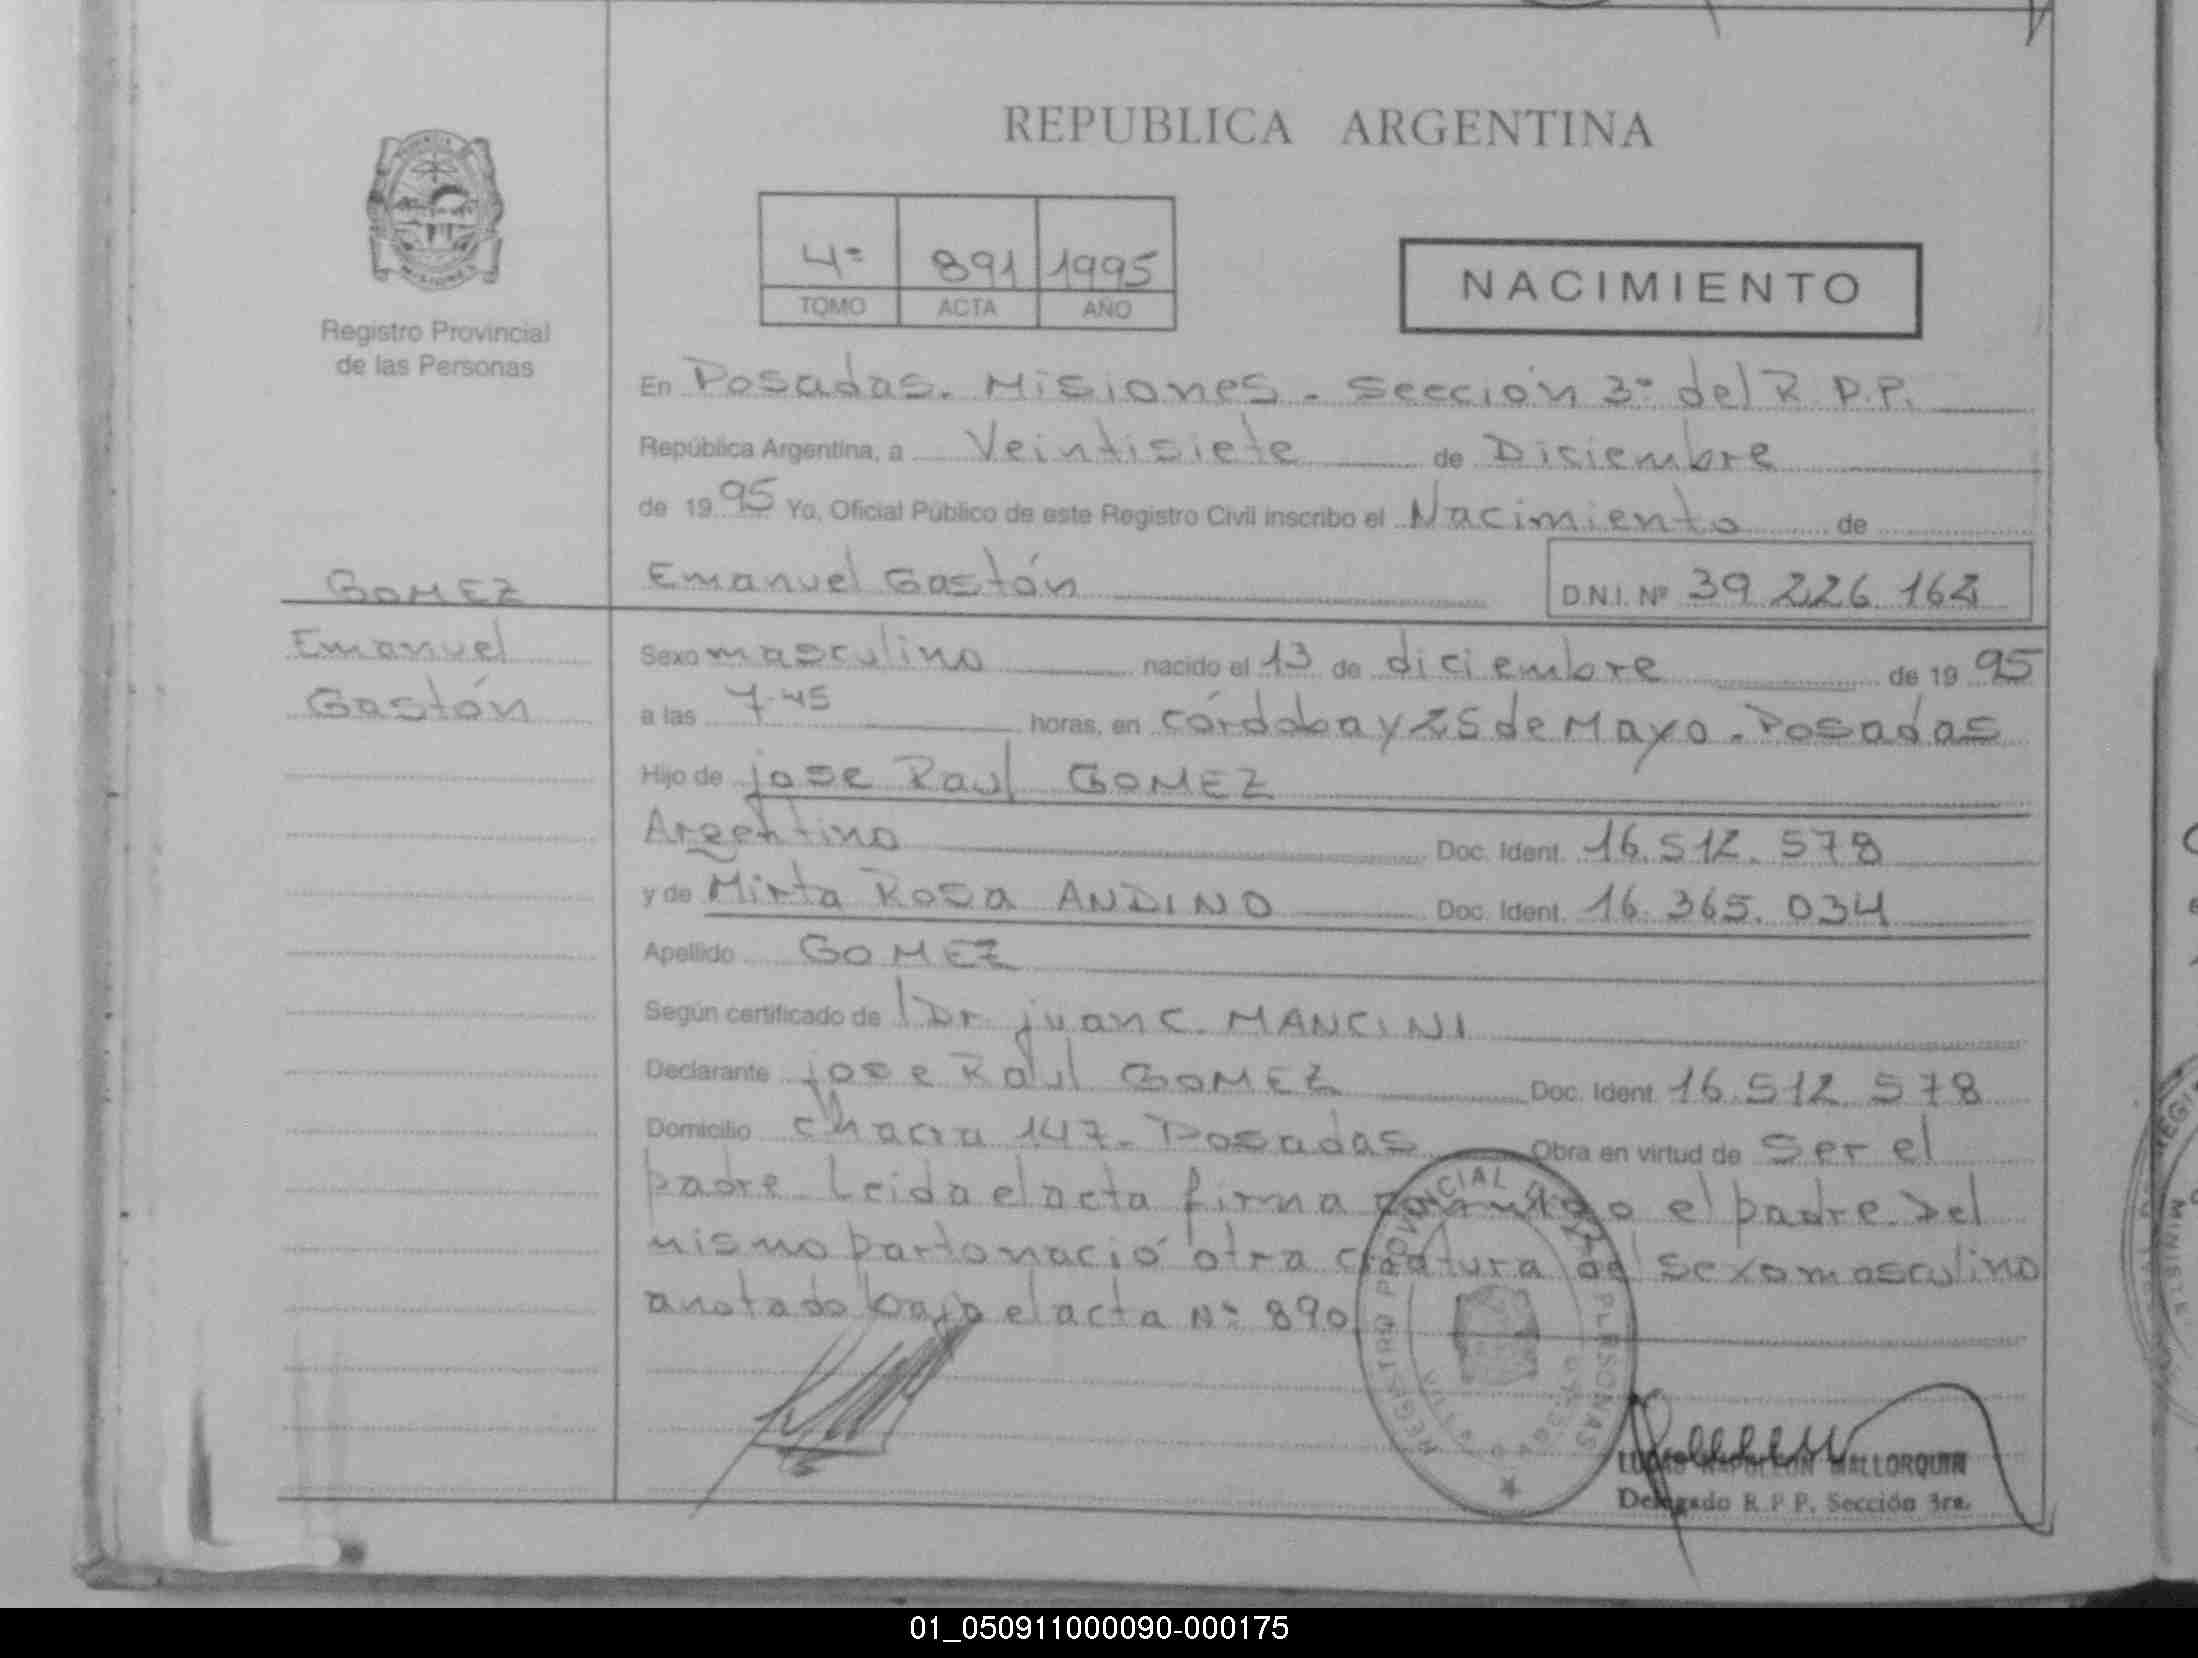 REPUBLICA ARGENTINA
4º 891 1995
TOMO ACTA AÑO
NACIMIENTO
Registro Provincial
de las Personas
En Posadas. Misiones. Sección 3º del R.P.P.
República Argentina, a Veintisiete de Diciembre
de 19 95 Yo, Oficial Público de este Registro Civil inscribo el Nacimiento de
GOMEZ
Emanuel
Gastón
Emanuel Gastón D.N.I. Nº 39 226 164
Sexo masculino nacido el 13 de diciembre de 19 95
a las 7.45 horas, en Córdoba y 25 de Mayo. Posadas
Hijo de jose Raul GOMEZ
Argentino Doc. Ident. 16.512.578
y de Mirta Rosa ANDINO Doc. Ident. 16.365.034
Apellido GOMEZ
Según certificado de Dr. juan C. MANCINI
Declarante jose Raul GOMEZ Doc. Ident. 16.512.578
Domicilio Chacra 147. Posadas Obra en virtud de Ser el
padre Leida el acta firma conmigo el padre. Del
mismo parto nació otra criatura del sexo masculino
anotado bajo el acta Nº 890
REGISTRO PROVINCIAL DE LAS PERSONAS
LUCAS NAPOLEON MALLORQUIN
Delegado R.P.P. Sección 3ra.
01_050911000090-000175